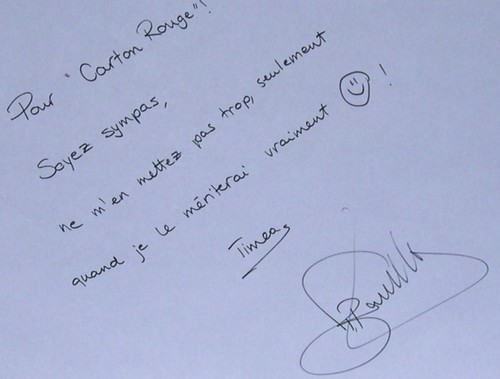 Pour "Carton Rouge"!
Soyez sympas,
ne m'en mettez pas trop, seulement
quand je le mériterai vraiment ☺ !
Timea